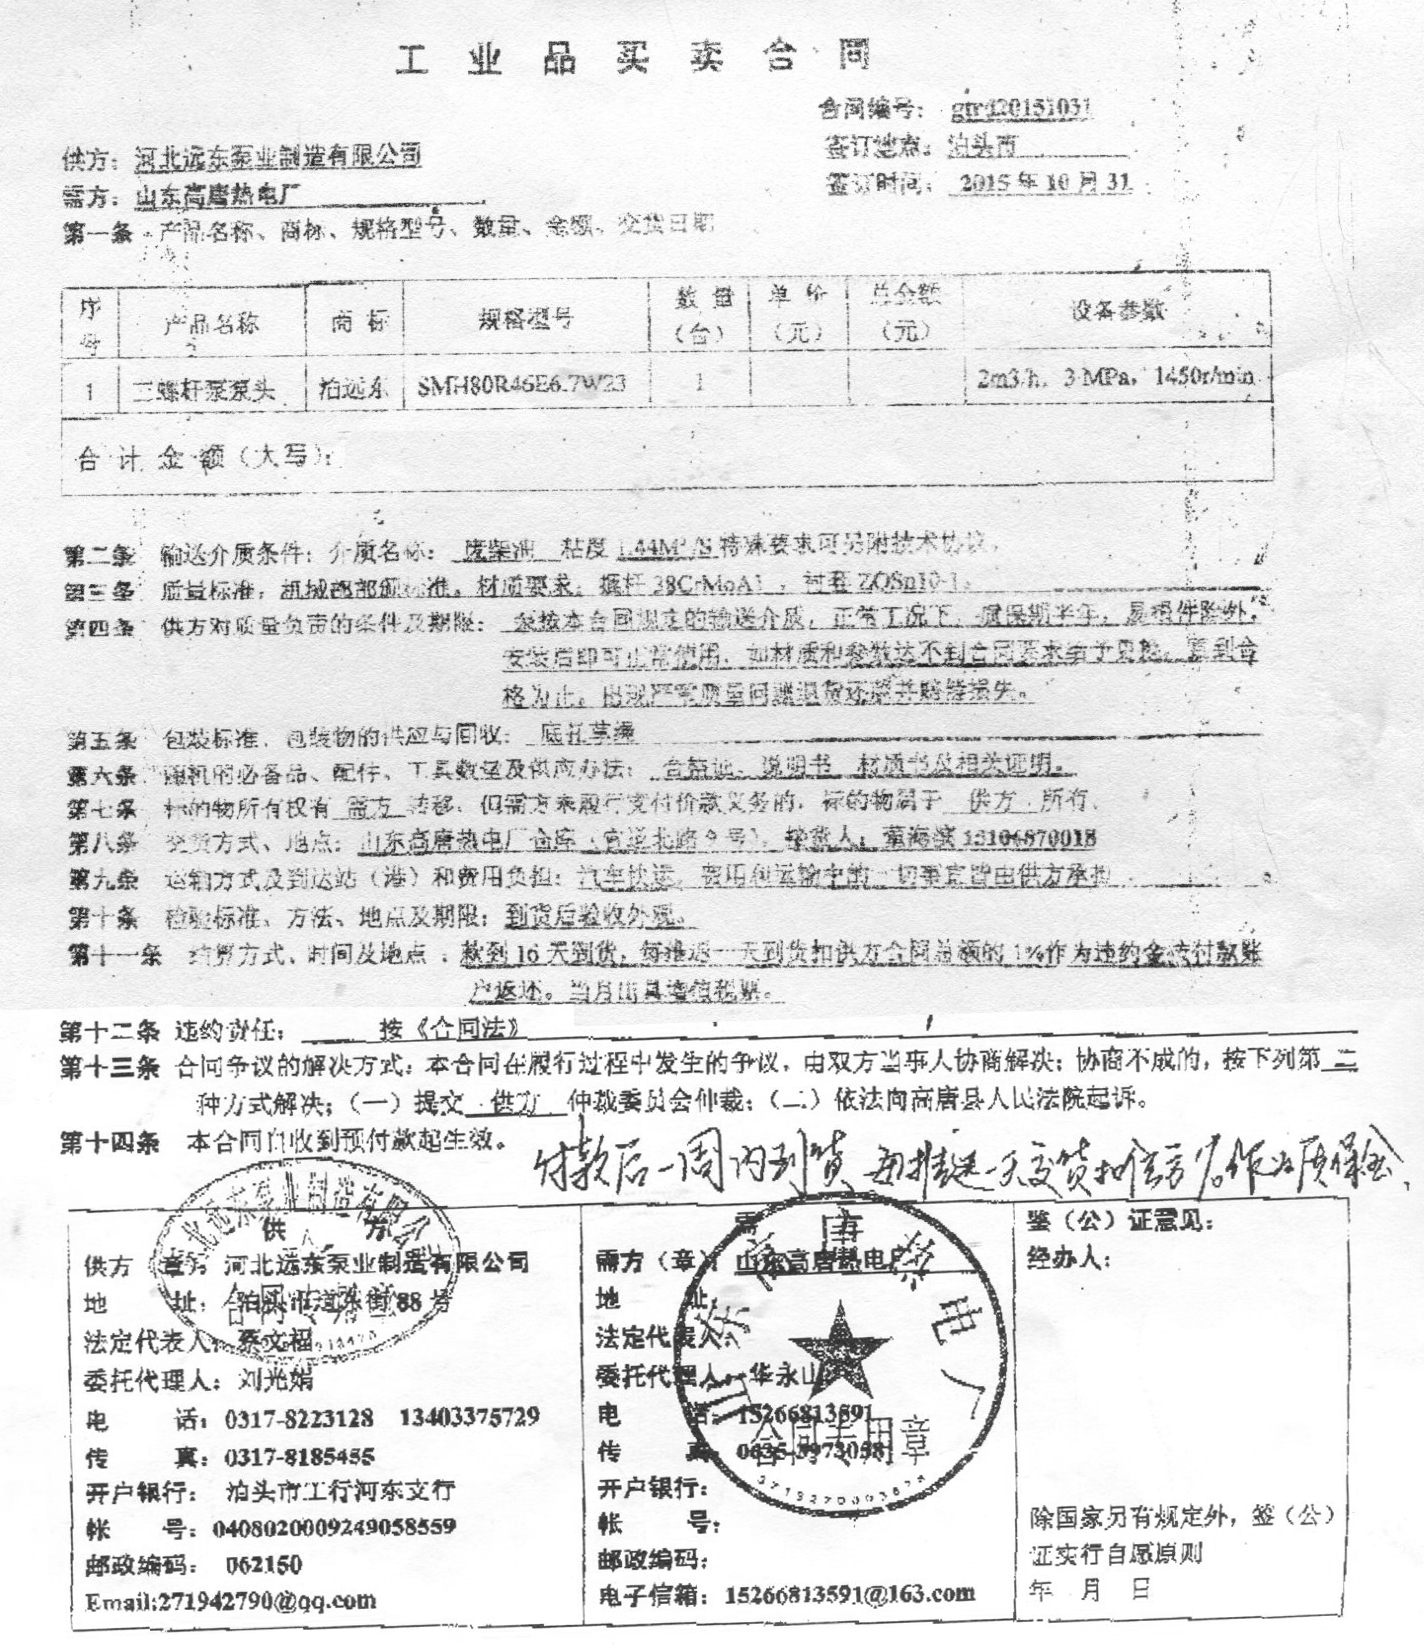 工业品买卖合同
合同编号： gtrd20151031
供方：河北远东泵业制造有限公司
签订地点：泊头市
需方：山东高唐热电厂
签订时间： 2015 年 10 月 31
第一条 产品名称、商标、规格型号、数量、金额、交货日期
序号 产品名称 商 标 规格型号 数 量（台） 单 价（元） 总金额（元） 设备参数
1 三螺杆泵泵头 泊远东 SMH80R46E6.7W23 1 2m3/h，3MPa，1450r/min
合 计 金 额（大写）：
第二条 输送介质条件：介质名称： 废柴油 粘度 1.44M²/S 特殊要求可另附技术协议。
第三条 质量标准：机械部部颁标准。材质要求：螺杆 38CrMoAl ，衬套 ZQSn10-1。
第四条 供方对质量负责的条件及期限： 泵按本合同规定的输送介质，正常工况下，质保期半年，易损件除外，
安装后即可正常使用，如材质和参数达不到合同要求给予更换，直到合
格为止。出现严重质量问题退货还款并赔偿损失。
第五条 包装标准、包装物的供应与回收： 底托草绳
第六条 随机的必备品、配件、工具数量及供应办法： 合格证、说明书 材质书及相关证明。
第七条 标的物所有权有 需方 转移，但需方未履行支付价款义务的，标的物属于 供方 所有。
第八条 交货方式、地点：山东高唐热电厂仓库（官道北路 9 号），接货人：董海滨13106870018
第九条 运输方式及到达站（港）和费用负担：汽车快运，费用和运输中的一切事宜皆由供方承担
第十条 检验标准、方法、地点及期限：到货后验收外观。
第十一条 结算方式、时间及地点 ：款到 16 天到货，每推迟一天到货扣供方合同总额的 1%作为违约金按付款账
户返还。当月出具增值税票。
第十二条 违约责任： 按《合同法》
第十三条 合同争议的解决方式：本合同在履行过程中发生的争议，由双方当事人协商解决；协商不成的，按下列第 二
种方式解决；（一）提交 供方 仲裁委员会仲裁；（二）依法向高唐县人民法院起诉。
第十四条 本合同自收到预付款起生效。
付款后一周内到货 每推迟一天交货扣供方 作为质保金.
供 方
供方（章）：河北远东泵业制造有限公司
地 址：泊头市道东街 88 号
法定代表人：蔡文福
委托代理人：刘光娟
电 话：0317-8223128 13403375729
传 真：0317-8185455
开户银行： 泊头市工行河东支行
帐 号：0408020009249058559
邮政编码： 062150
Email:271942790@qq.com
河北远东泵业制造有限公司
合同专用章
需
需方（章）：山东高唐热电厂
地 址：
法定代表人：
委托代理人：华永山
电 话：15266813591
传 真：0635-3973058
开户银行：
帐 号：
邮政编码：
电子信箱：15266813591@163.com
山东高唐热电厂
合同专用章
鉴（公）证意见：
经办人：
除国家另有规定外，鉴（公）
证实行自愿原则
年 月 日